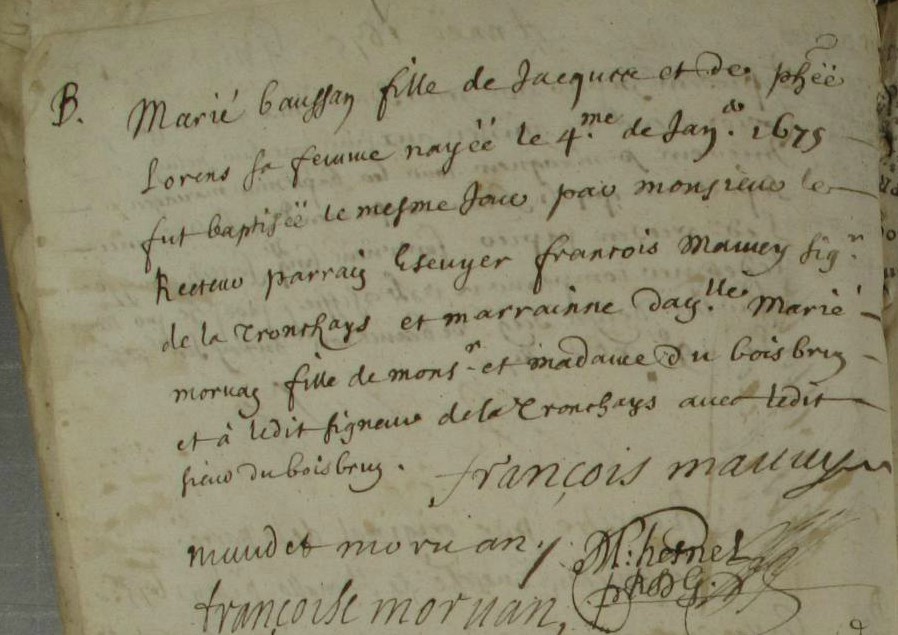 B. Marié baussan fille de Jacques et de phēē
Lorens sa femme nayéé le 4.me de Jan.er 1675
fut baptiséé le mesme Jour par monsieur le
Recteur parrain Escuyer francois Mauuy sig.r
de la tronchays et marrainne dam.lle Marié
moruan fille de mons.r et madame du bois brun
et à ledit signeur de la tronchays avec ledit
sieur du bois brun.
françois mauuy
maudet moruan. M: hernet
françoise moruan,